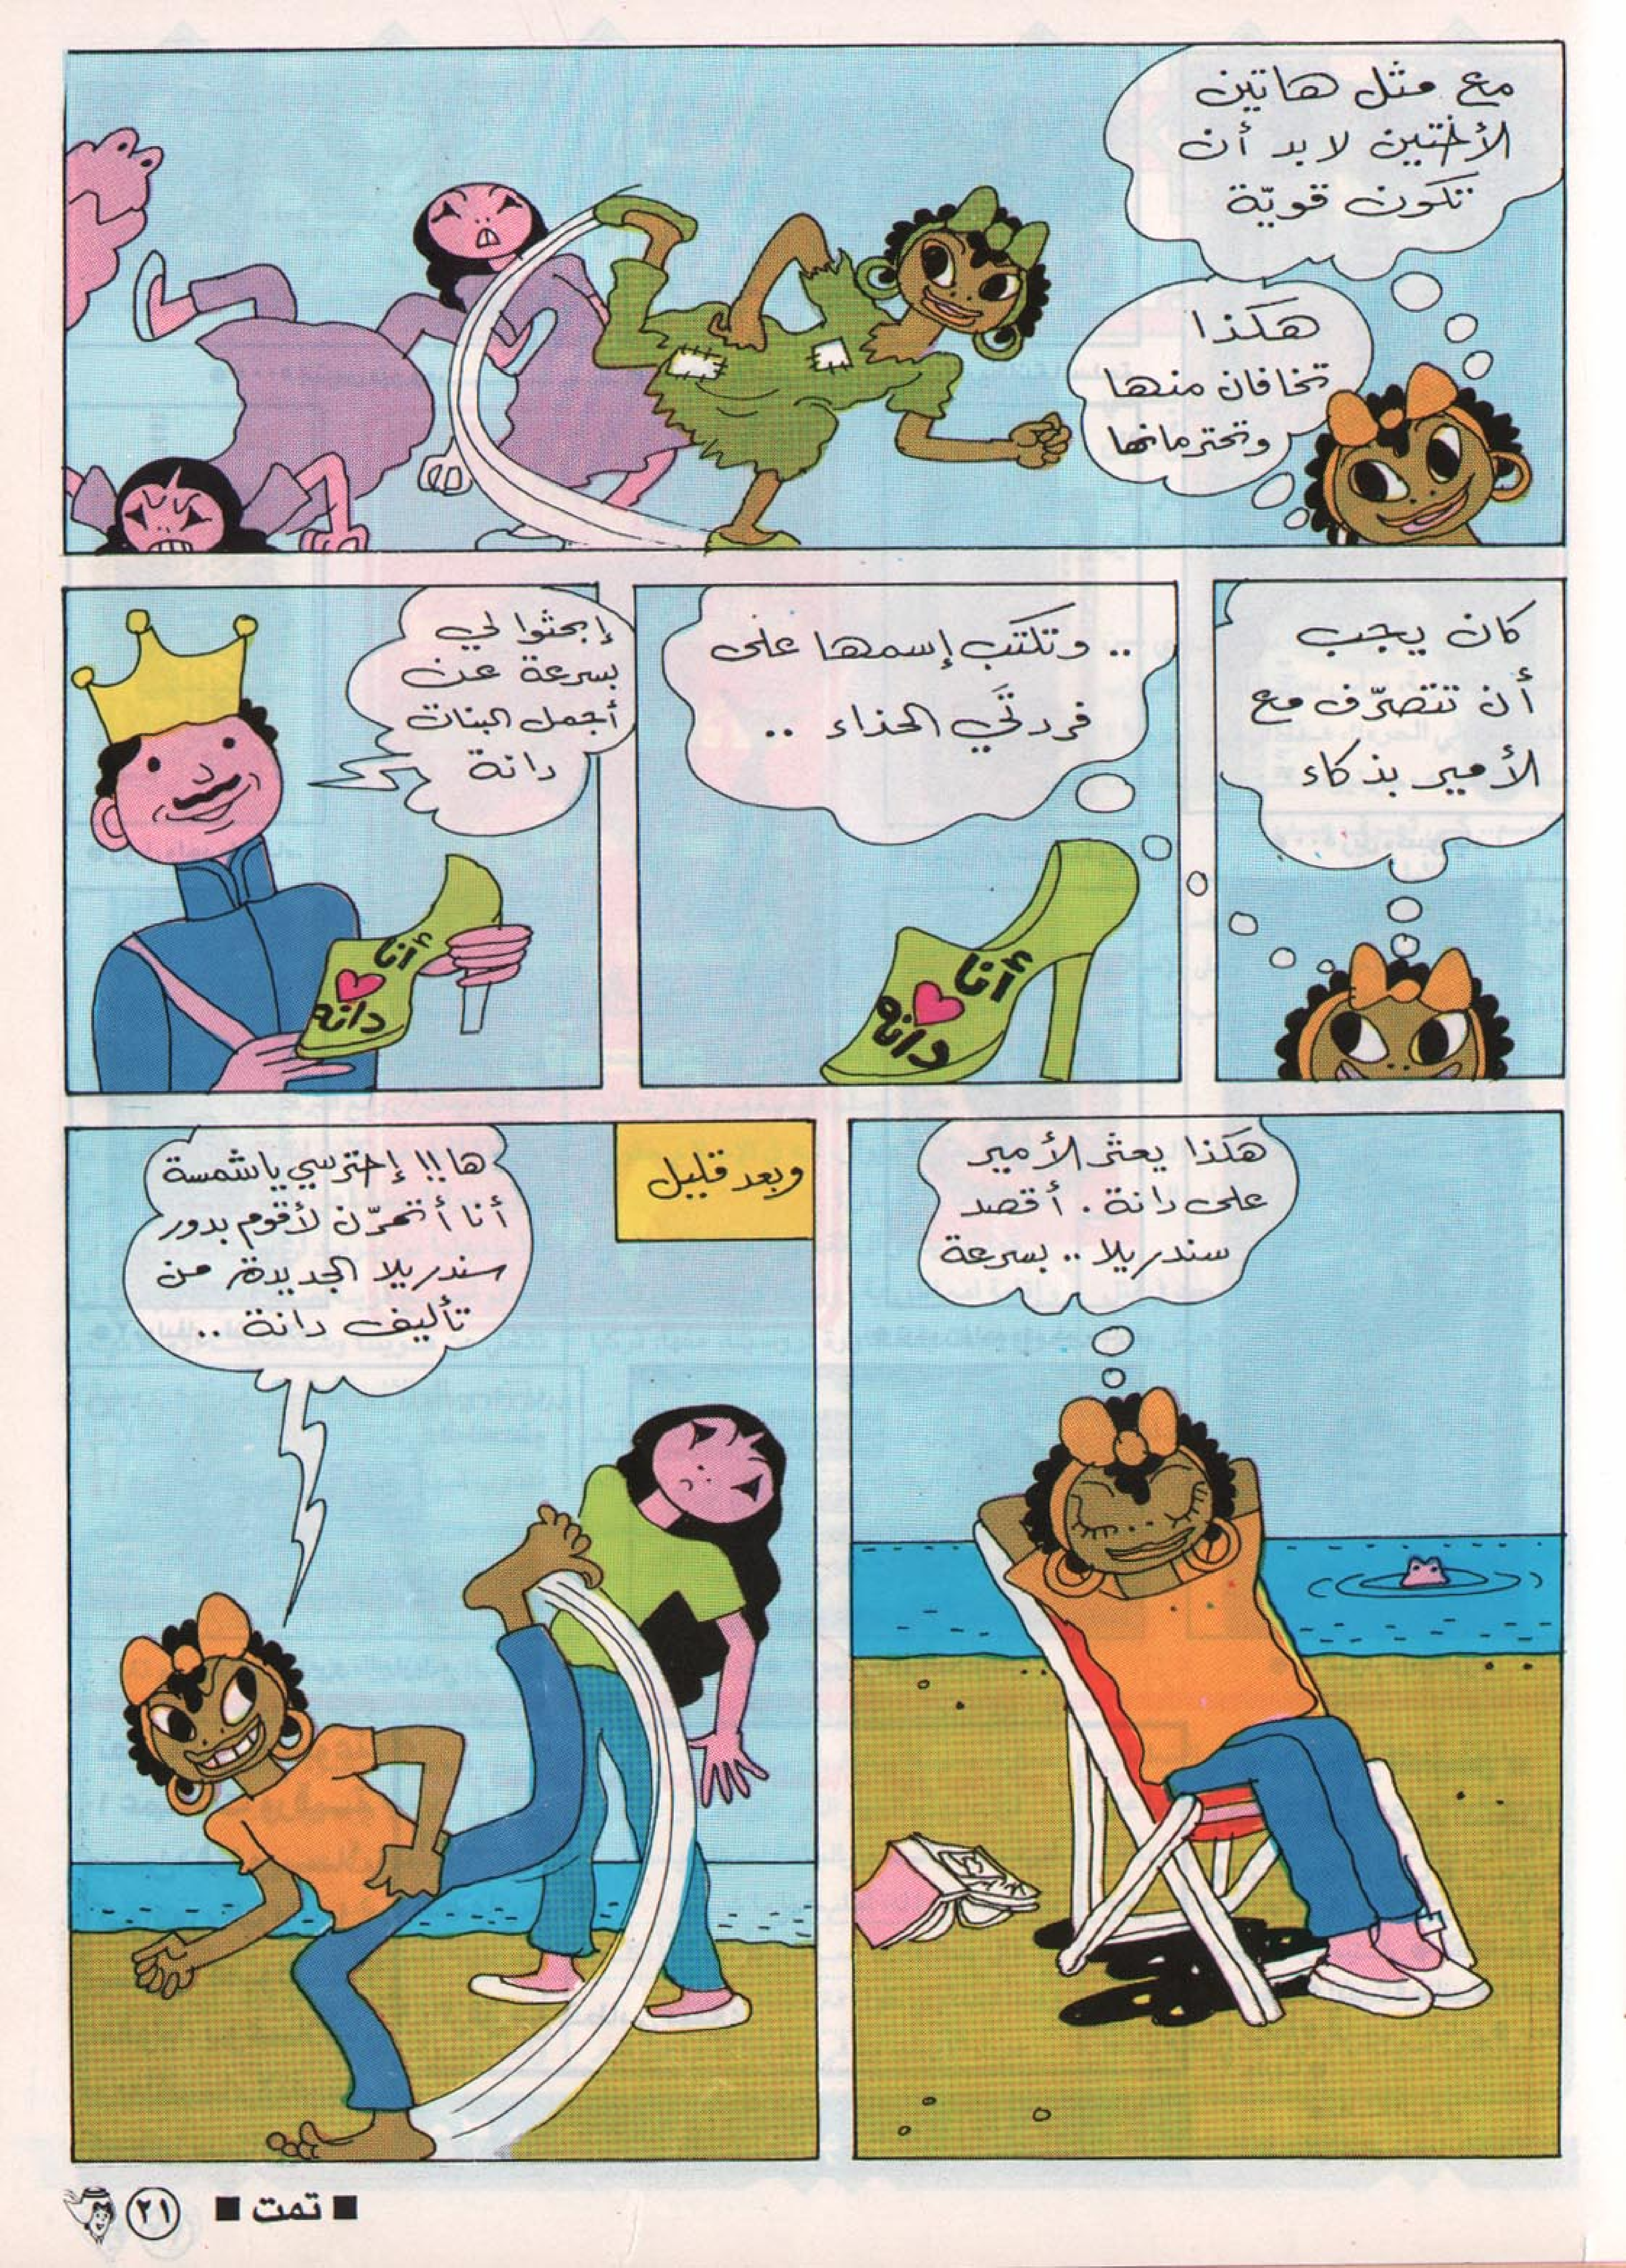 مع مثل هاتين
الأختين لا بد أن
تكون قويّة
هكذا
تخافان منها
وتحترمانها
كان يجب
أن تتصرّف مع
الأمير بذكاء
.. وتكتب إسمها على
فردتَي الحذاء ..
أنا
دانه
إبحثوا لي
بسرعة عن
أجمل البنات
دانة
أنا
دانه
هكذا يعثر الأمير
على دانة . أقصد
سندريلا .. بسرعة
وبعد قليل
ها !! إحترسي يا شمسة
أنا أتمرّن لأقوم بدور
سندريلا الجديدة من
تأليف دانة ..
■ تمت ■
٢١